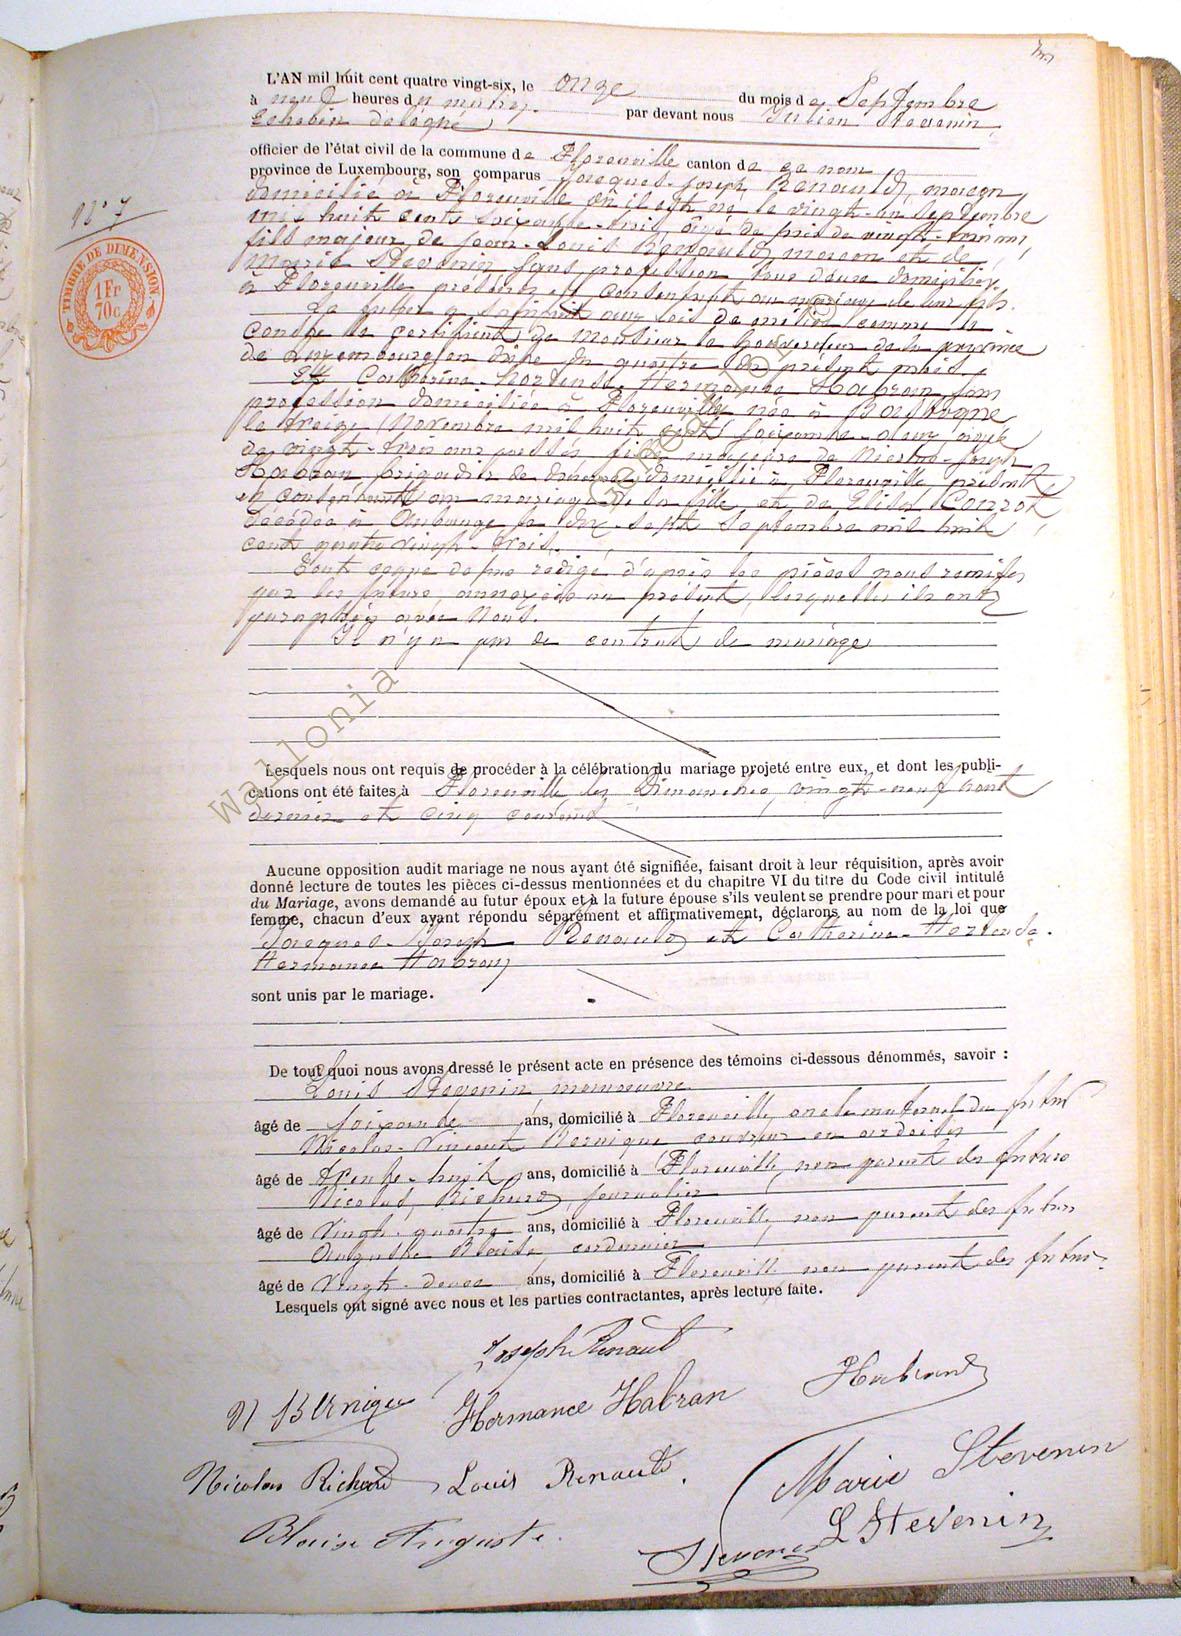 L'AN mil huit cent quatre vingt-six, le onze du mois de Septembre
à neuf heures du matin, par devant nous Julien Stevenin,
Echevin délégué
officier de l'état civil de la commune de Florenville canton de ce nom
province de Luxembourg, son comparus Jacques-Joseph Renauld, maçon,
domicilié à Florenville où il est né le vingt-un Septembre
mil huit cent soixante-trois, âgé de près de vingt-trois ans,
fils majeur de Jean-Louis Renauld, maçon et de
Marie Stevenin sans profession tous deux domiciliés
à Florenville présents et consentant au mariage de leur fils.
Le futur a satisfait aux lois de milice comme le
constate le certificat de Monsieur le Gouverneur de la province
de Luxembourg en date du quatre du présent mois,
Et Catherine-Hortense-Hermance Habran sans
profession domiciliée à Florenville née à Bastogne
le treize Novembre mil huit cent soixante-deux, âgée
de vingt-trois ans passés, fille majeure de Joseph
Habran brigadier de douane domicilié à Florenville présent
et consentant au mariage de sa fille et de Elisa
décédée à Aubange le dix-sept Septembre mil huit
cent quatre vingt-trois.
Tout ceque dessus rédigé d'après les pièces nous remises
par les futurs, annexées au présent, lesquelles ils ont
paraphées avec Nous.
Il n'y a pas de contrat de mariage
Lesquels nous ont requis de procéder à la célébration du mariage projeté entre eux, et dont les publi-
cations ont été faites à Florenville les Dimanches vingt-neuf Août
dernier et cinq courant
Aucune opposition audit mariage ne nous ayant été signifiée, faisant droit à leur réquisition, après avoir
donné lecture de toutes les pièces ci-dessus mentionnées et du chapitre VI du titre du Code civil intitulé
du Mariage, avons demandé au futur époux et à la future épouse s'ils veulent se prendre pour mari et pour
femme, chacun d'eux ayant répondu séparément et affirmativement, déclarons au nom de la loi que
Jacques-Joseph Renauld et Catherine-Hortense-
Hermance Habran
sont unis par le mariage.
De tout quoi nous avons dressé le présent acte en présence des témoins ci-dessous dénommés, savoir :
Louis Stevenin, manœuvre
âgé de soixante ans, domicilié à Florenville, oncle maternel du futur
Nicolas-Vincent Bernique couvreur en ardoises
âgé de trente-huit ans, domicilié à Florenville, non parent des futurs
Nicolas Richard, journalier
âgé de vingt-quatre ans, domicilié à Florenville, non parent des futurs
Auguste Blaise, cordonnier
âgé de vingt-deux ans, domicilié à Florenville non parent des futurs.
Lesquels ont signé avec nous et les parties contractantes, après lecture faite.
N° 7
TIMBRE DE DIMENSION.
1 Fr
70 c
Wallonia
Joseph Renault
N Bernique Hermance Habran Habran
Nicolas Richard Louis Renauld. Marie Stevenin
L Stevenin
Blaise Auguste. Stevenin